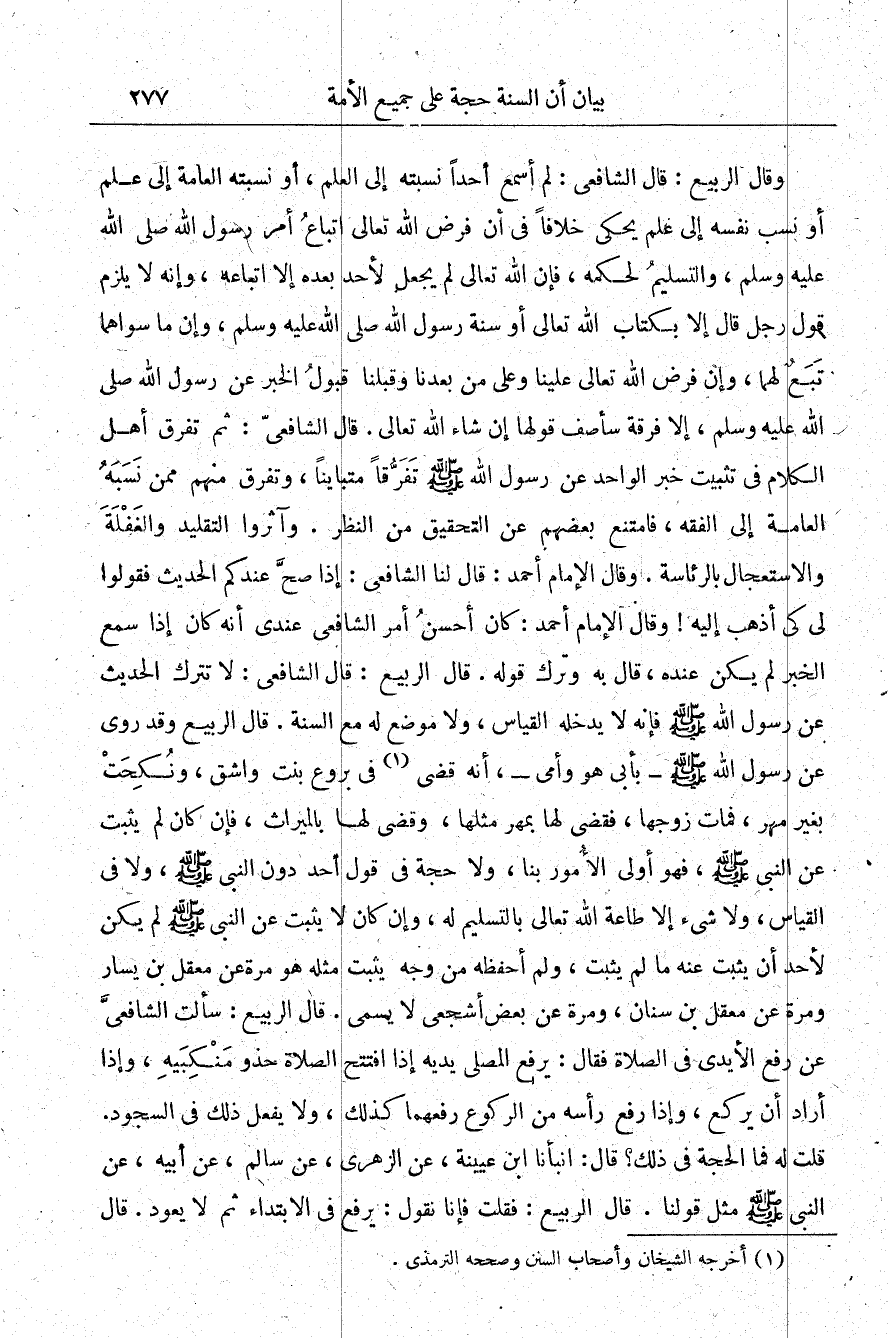 بيان أن السنة حجة على جميع الأمة ٢٧٧
وقال الربيع : قال الشافعى : لم أسمع أحداً نسبته إلى العلم ، أو نسبته العامة إلى علم
أو نسب نفسه إلى علم يحكى خلافاً فى أن فرض الله تعالى اتباعُ أمر رسول الله صلى الله
عليه وسلم ، والتسليمُ لحكمه ، فإن الله تعالى لم يجعل لأحد بعده إلا اتباعه ، وإنه لا يلزم
قول رجل قال إلا بكتاب الله تعالى أو سنة رسول الله صلى الله عليه وسلم ، وإن ما سواهما
تَبَعٌ لهما ، وإن فرض الله تعالى علينا وعلى من بعدنا وقبلنا قبولُ الخبر عن رسول الله صلى
الله عليه وسلم ، إلا فرقة سأصف قولها إن شاء الله تعالى . قال الشافعىّ : ثم تفرق أهل
الكلام فى تثبيت خبر الواحد عن رسول الله ﷺ تَفَرُّقاً متبايناً ، وتفرق منهم ممن نَسَبَهُ
العامة إلى الفقه ، فامتنع بعضهم عن التحقيق من النظر . وآثروا التقليد والغَفْلَةَ
والاستعجال بالرئاسة . وقال الإمام أحمد : قال لنا الشافعى : إذا صحَّ عندكم الحديث فقولوا
لى كى أذهب إليه ! وقال الإمام أحمد : كان أحسنُ أمر الشافعى عندى أنه كان إذا سمع
الخبر لم يكن عنده ، قال به وترك قوله . قال الربيع : قال الشافعى : لا تترك الحديث
عن رسول الله ﷺ فإنه لا يدخله القياس ، ولا موضع له مع السنة . قال الربيع وقد روى
عن رسول الله ﷺ ـ بأبى هو وأمى ـ ، أنه قضى (١) فى بروع بنت واشق ، ونُكِحَتْ
بغير مهر ، فمات زوجها ، فقضى لها بمهر مثلها ، وقضى لها بالميراث ، فإن كان لم يثبت
عن النبى ﷺ ، فهو أولى الأمور بنا ، ولا حجة فى قول أحد دون النبى ﷺ ، ولا فى
القياس ، ولا شىء إلا طاعة الله تعالى بالتسليم له ، وإن كان لا يثبت عن النبى ﷺ لم يكن
لأحد أن يثبت عنه ما لم يثبت ، ولم أحفظه من وجه يثبت مثله هو مرة عن معقل بن يسار
ومرة عن معقل بن سنان ، ومرة عن بعض أشجعى لا يسمى . قال الربيع : سألت الشافعىَّ
عن رفع الأيدى فى الصلاة فقال : يرفع المصلى يديه إذا افتتح الصلاة حذو مَنْكِبَيهِ ، وإذا
أراد أن يركع ، وإذا رفع رأسه من الركوع رفعهما كذلك ، ولا يفعل ذلك فى السجود.
قلت له فما الحجة فى ذلك؟ قال: انبأنا ابن عيينة ، عن الزهرى ، عن سالم ، عن أبيه ، عن
النبى ﷺ مثل قولنا . قال الربيع : فقلت فإنا نقول : يرفع فى الابتداء ثم لا يعود . قال
(١) أخرجه الشيخان وأصحاب السنن وصححه الترمذى .